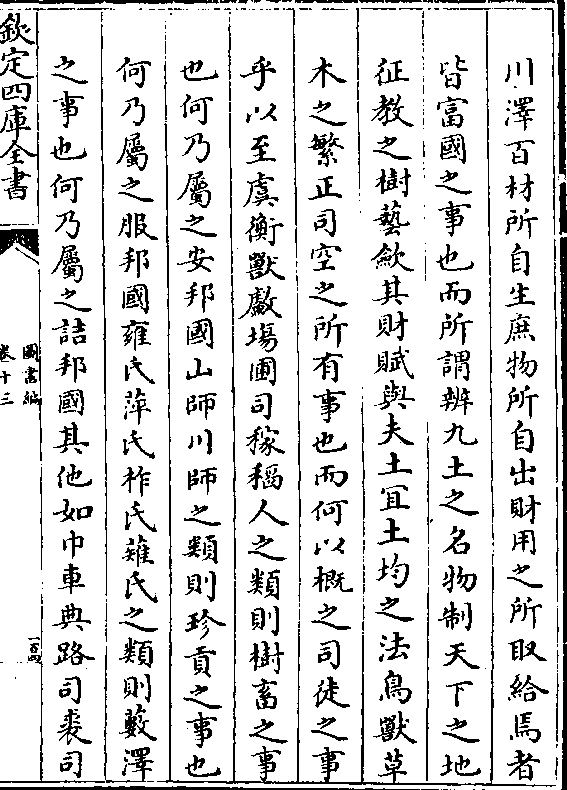 川澤百材所自生庶物所自出財用之所取給焉者
皆富國之事也而所謂辨九土之名物制天下之地
征教之樹藝斂其財賦與夫土宜土均之法鳥獸草
木之繁正司空之所有事也而何以概之司徒之事
乎以至虞衡獸𪊨塲圃司稼稻人之類則樹畜之事
也何乃屬之安邦國山師川師之類則珍貢之事也
何乃屬之服邦國雍氏萍氏柞氏薙氏之類則藪澤
之事也何乃屬之詰邦國其他如巾車典路司裘司
欽定四庫全書
圖書編
卷十三